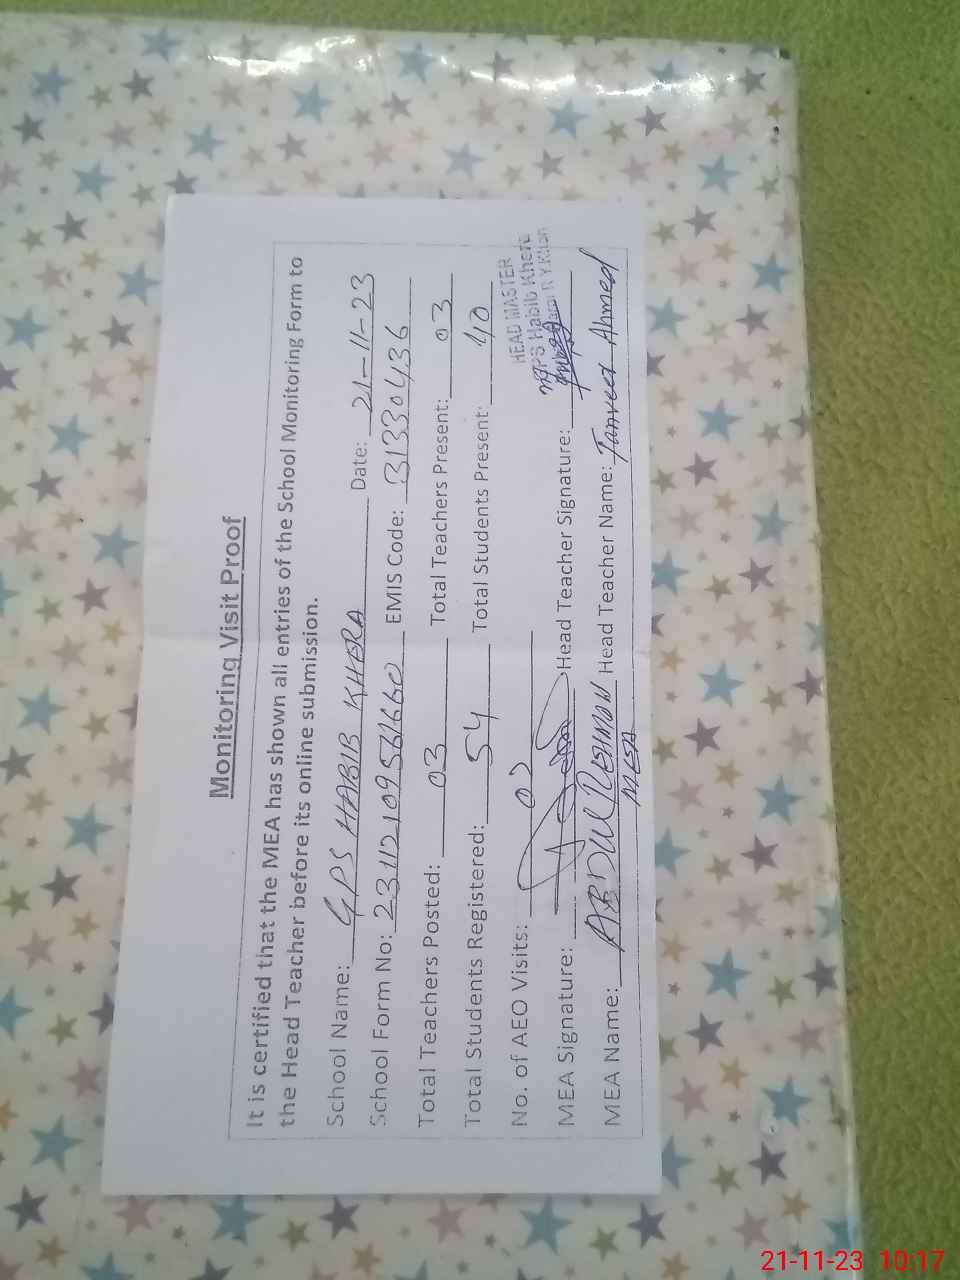 Monitoring Visit Proof
It is certified that the MEA has shown all entries of the School Monitoring Form to
the Head Teacher before its online submission.
School Name: GPS HABIB KHERA Date: 21-11-23
School Form No: EMIS Code: 31330436
Total Teachers Posted: 03 Total Teachers Present: 03
Total Students Registered: 54 Total Students Present: 40
No. of AEO Visits: 02
HEAD MASTER
GPS Habib Khera
MEA Signature: Head Teacher Signature:
MEA Name: ABDUL REHMAN Head Teacher Name: Tanveer Ahmed
MEA
21-11-23 10:17